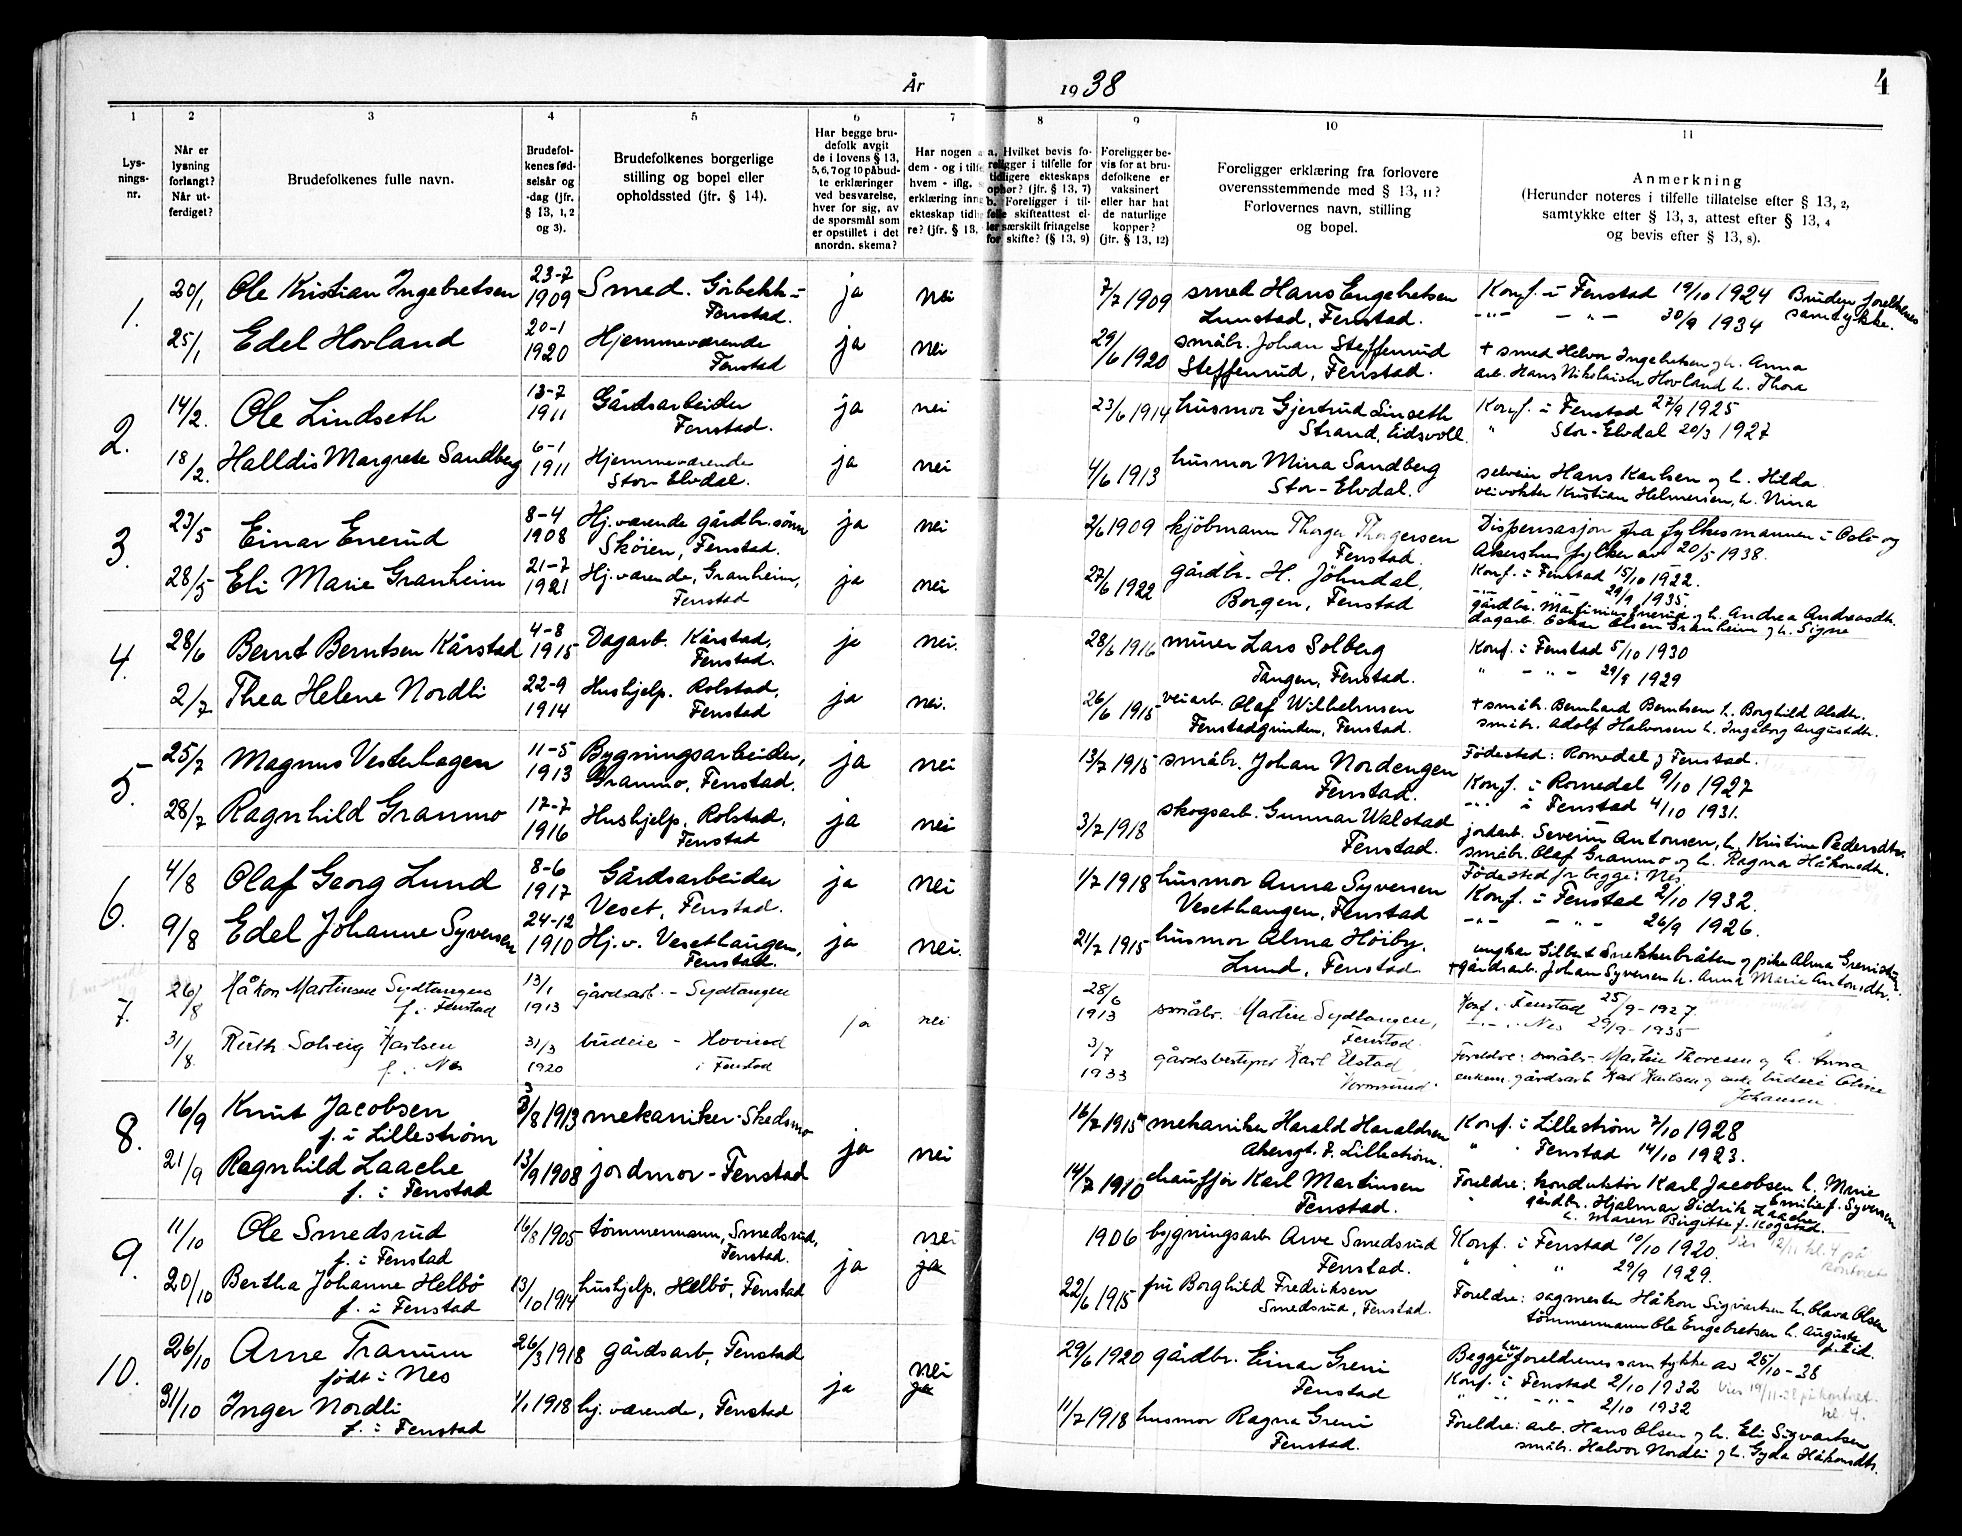 År 1938
4
1
2
3
4
5
6
7
8
9
10
11
Lys-
nings-
nr.
Når er
lysning
forlangt?
Når ut-
ferdiget?
Brudefolkenes fulle navn.
Brudefol-
kenes fød-
selsår og
-dag (jfr.
§ 13, 1, 2
og 3).
Brudefolkenes borgerlige
stilling og bopel eller
opholdssted (jfr. § 14).
Har begge bru-
defolk avgit
de i lovens § 13,
5, 6, 7 og 10 påbud-
te erklæringer
ved besvarelse,
hver for sig, av
de spørsmål som
er opstillet i det
anordn. skema?
Har nogen a
dem - og i tilfe
hvem - iflg. s
erklæring inng
ekteskap tidli
re? (jfr. § 13,
a. Hvilket bevis fo-
religger i tilfelle for
tidligere ekteskaps
ophør? (jfr. § 13, 7)
b. Foreligger i til-
felle skifteattest el-
ler særskilt fritagelse
for skifte? (§ 13, 9)
Foreligger be-
vis for at bru-
defolkene er
vaksinert
eller har hat
de naturlige
kopper?
(jfr. § 13, 12)
Foreligger erklæring fra forlovere
overensstemmende med § 13, 11?
Forlovernes navn, stilling
og bopel.
Anmerkning
(Herunder noteres i tilfelle tillatelse efter § 13, 2,
samtykke efter § 13, 3, attest efter § 13, 4
og bevis efter § 13, 8).
1.
20/1 Ole Kristian Ingebretsen 23-7 1909 Smed. Girbekk - Fenstad. ja nei 7/7 1909 smed Hans Engebretsen Lunstad, Fenstad. Konf. i Fenstad 19/10 1924 Bruden foreldrenes samtykke.
-"- - " - 30/9 1934
25/1 Edel Hovland 20-1 1920 Hjemmeværende Fenstad ja nei 29/6 1920 småbr. Johan Steffenrud Steffenrud, Fenstad. + smed Helvor Ingebretsen g h. Anna
arb. Hans Nikolaisen Hovland h. Thora
2.
14/2. Ole Lindseth 13-7 1911 Gårdsarbeider Fenstad. ja nei 23/6 1914 husmor Gjertrud Linseth Strand, Eidsvoll. Konf. i Fenstad 27/9 1925
" Stor-Elvdal 20/3 1927
18/2. Halldis Margrete Sandberg 6-1 1911 Hjemmeværende Stor-Elvdal. ja nei 4/6 1913 husmor Mina Sandberg Stor-Elvdal. selveier Hans Karlsen og h. Hilda
veivokter Kristian Helmersen, h. Nina
3.
23/5 Einar Enerud 8-4 1908 Hj.værende gårdbr.sønn Skøien, Fenstad. ja nei 2/6 1909 kjøbmann Thorger Thorgersen Fenstad. Dispensasjon fra fylkesmannen i Oslo og
Akershus fylker av 20/5 1938.
28/5 Eli Marie Granheim 21-7 1921 Hj.værende, Granheim, Fenstad ja nei 27/6 1922 gårdbr. H. Jöhndal, Borgen, Fenstad Konf. i Fenstad 15/10 1922.
-"- - " - 29/9 1935
gårdbr. Martinius Enerud g h. Andrea Andreasdtr.
dagarb. Oskar Olsen Granheim g h. Signe
4.
28/6 Bernt Berntsen Kårstad 4-8 1915 Dagarb. Kårstad, Fenstad. ja nei. 28/6 1916 murer Lars Solberg Tangen, Fenstad. Konf. i Fenstad 5/10 1930
" - " - 29/9 1929
2/7 Thea Helene Nordli 22-9 1914 Hushjelp. Rolstad, Fenstad ja nei. 26/6 1915 veiarb. Olaf Wilhelmsen Fenstadgrinden, Fenstad. + småbr. Bernhard Berntsen h. Borghild Olsdtr.
småbr. Adolf Halvorsen h. Ingeborg Augustdtr.
5.
25/7 Magnus Vesterhagen 11-5 1913 Bygningsarbeider, Granmo, Fenstad. ja nei 13/7 1915 småbr. Johan Nordengen Fenstad. Fødested: Romedal og Fenstad.
Konf. i Romedal 9/10 1927
-"- i Fenstad 4/10 1931.
28/7 Ragnhild Granmo 17-7 1916 Hushjelp, Rolstad, Fenstad ja nei 3/7 1918 skogsarb. Gunnar Walstad Fenstad. jordarb. Severin Antonsen, h. Kristine Pedersdtr.
småbr. Olaf Granmo og h. Ragna Håkonsdtr.
6.
4/8 Olaf Georg Lund 8-6 1917 Gårdsarbeider Veset, Fenstad. ja nei 1/7 1918 husmor Anna Syversen Vesethaugen, Fenstad Fødested for begge: Nes
Konf. i Fenstad 2/10 1932.
-"- - " - 26/9 1926.
9/8 Edel Johanne Syversen 24-12 1910 Hj.v. Vesethaugen, Fenstad. ja nei. 21/7 1915 husmor Alma Høiby. Lund, Fenstad. ungkar Gilbert Snekkerbråten og pike Alma Grenistuen.
+gårdsarb. Johan Syversen h. Anna Marie Antonsdtr.
7.
26/8 Håkon Martinsen Sydtangen f. i Fenstad 13/1 1913 gårdsarb. - Sydtangen ja nei 28/6 1913 småbr. Martin Sydtangen, Fenstad. Konf. i Fenstad 25/9-1927
-"- i Nes 29/9-1935
31/8. Ruth Solveig Karlsen f. i Nes 31/3 1920 budeie - Hovind i Fenstad 3/7 1933 gårdsbestyrer Karl Elstad Vormsund Foreldre: småbr. Martin Thoresen og h. Anna
enkem. gårdsarb Karl Karlsen og budeie Oline
Johansen.
8.
16/9 Knut Jacobsen f. i Lillestrøm 3/8 1913 mekaniker - Skedsmo ja nei 16/7 1915 mekaniker Harald Haraldsen Akersgt. 7. Lillestrøm. Konf. i Lillestrøm 7/10 1928
" " Fenstad 14/10 1923.
21/9 Ragnhild Laache f. i Fenstad 13/9 1908 jordmor - Fenstad 14/7 1910 chauffør Karl Martinsen Fenstad. Foreldre: konduktør Karl Jacobsen h. Marie
Emilie f. Syversen
" gårdbr. Hjalmar Didrik Laache
h. Maren Birgitte f. Rogstad.
9.
11/10 Ole Smedsrud f. i Fenstad 16/8 1905 tømmermann, Smedsrud, Fenstad. ja nei ja 1906 bygningsarb Arve Smedsrud Fenstad. Konf. i Fenstad 10/10 1920. Vies 12/11 kl. 4 på kontoret
" " " 29/9 1929.
20/10 Bertha Johanne Helbø f. i Fenstad 13/10 1914 hushjelp, Helbø, Fenstad 22/6 1915 fru Borghild Fredriksen Smedsrud, Fenstad. Foreldre: sagmester Håkon Sigvartsen h. Olava Olsen
tømmermann Ole Engebretsen h. Auguste
f. Eid.
10.
26/10 Arne Tranum født i Nes 26/3 1918 gårdsarb, Fenstad ja nei ja 29/6 1920 gårdbr. Einar Greni Fenstad Begge har foreldrenes samtykke av 25/10-38
Konf. i Fenstad 2/10 1932 Vies 19/11-38 på kontoret kl. 4.
" " - " - 2/10 1932
31/10 Inger Nordli f. i Fenstad 1/1 1918 hj. værende, Fenstad 11/7 1918 husmor Ragna Greni Fenstad. Foreldre: arb. Hans Olsen g h. Eli Sigvartsen,
småbr. Halvor Nordli g h. Gyda Håkonsdtr.